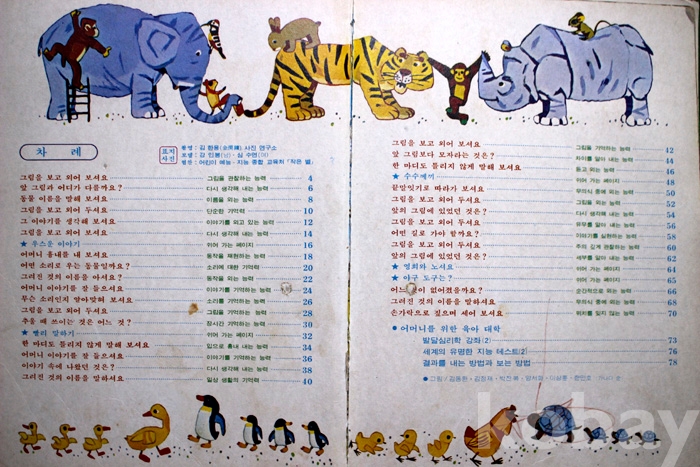 차 례
표지 사진
촬영 : 김 한용(金漢鏞) 사진 연구소
모델 : 강 민봉(남)·심 수연(여)
왼쪽 : 어린이 예능·지능 종합 교육처 「작은 별」
그림을 보고 외어 보셔요 그림을 관찰하는 능력 4
앞 그림과 어디가 다를까요? 다시 생각해 내는 능력 6
동물 이름을 말해 보셔요 이름을 외는 능력 8
그림을 보고 외어 두셔요 단순한 기억력 10
그 이야기를 생각해 보셔요 이야기를 외고 있는 능력 12
그림을 보고 외어 보셔요 다시 생각해 내는 능력 14
★ 우스운 이야기 쉬어 가는 페이지 16
어머니 흉내를 내 보셔요 동작을 재현하는 능력 18
어떤 소리로 우는 동물일까요? 소리에 대한 기억력 20
그려진 것의 이름을 아셔요? 동작을 외는 능력 22
어머니 이야기를 잘 들으셔요 이야기를 기억하는 능력 24
무슨 소리인지 알아맞혀 보셔요 소리를 기억하는 능력 26
그림을 보고 외어 두셔요 그림을 기억하는 능력 28
추울 때 쓰이는 것은 어느 것? 장시간 기억하는 능력 30
★ 빨리 말하기 쉬어 가는 페이지 32
한 마디도 틀리지 않게 말해 보셔요 입으로 흉내 내는 능력 34
어머니 이야기를 잘 들으셔요 이야기를 기억하는 능력 36
이야기 속에 나왔던 것은? 다시 생각해 내는 능력 38
그려진 것의 이름을 말하셔요 일상 생활의 기억력 40
그림을 보고 외어 보셔요 그림을 기억하는 능력 42
앞 그림보다 모자라는 것은? 차이를 알아 내는 능력 44
한 마디도 틀리지 않게 말해 보셔요 듣고 외는 능력 46
★ 수수께끼 쉬어 가는 페이지 48
끝말잇기로 따라가 보셔요 무의식 중에 외는 능력 50
그림을 보고 외어 두셔요 그림을 외는 능력 52
앞의 그림에 있었던 것은? 다시 생각해 내는 능력 54
그림을 보고 외어 두셔요 유무를 알아 내는 능력 56
어떤 길로 가야 할까요? 이야기를 실현하는 능력 58
그림을 보고 외어 두셔요 주의 깊게 관찰하는 능력 60
앞의 그림에 있었던 것은? 세부를 알아 내는 능력 62
★ 영희와 노셔요 쉬어 가는 페이지 64
★ 야구 도구는? 쉬어 가는 페이지 65
어느 이 없어졌을까요? 순간적으로 외는 능력 66
그려진 것의 이름을 말하셔요 무의식 중에 외는 능력 68
손가락으로 짚으며 세어 보셔요 위치를 잊지 않는 능력 70
● 어머니를 위한 육아 대학
발달심리학 강좌(2) 73
세계의 유명한 지능 테스트(2) 76
결과를 내는 방법과 보는 방법 78
kobay